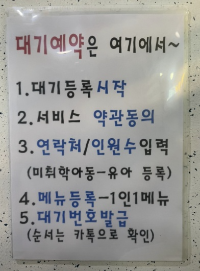 대기예약은 여기에서~
1.대기등록시작
2.서비스 약관동의
3.연락처/인원수입력
(미취학아동-유아 등록)
4.메뉴등록-1인1메뉴
5.대기번호발급
(순서는 카톡으로 확인)